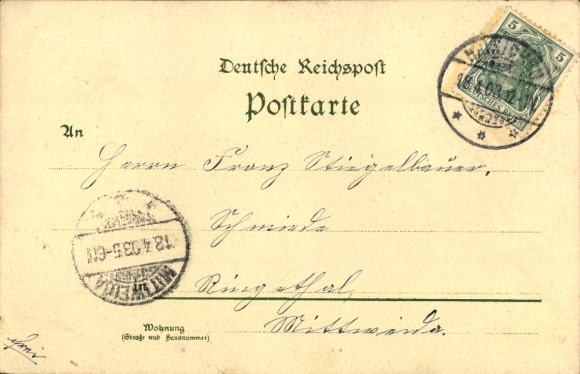 5 5
Deutsche Reichspost
Postkarte
An
Herrn Franz Stiegelbauer.
Schmiede
18.4.03.5-6N
MITTWEIDA
in
Ringethal,
Mittweida.
Wohnung
(Straße und Hausnummer)
frei